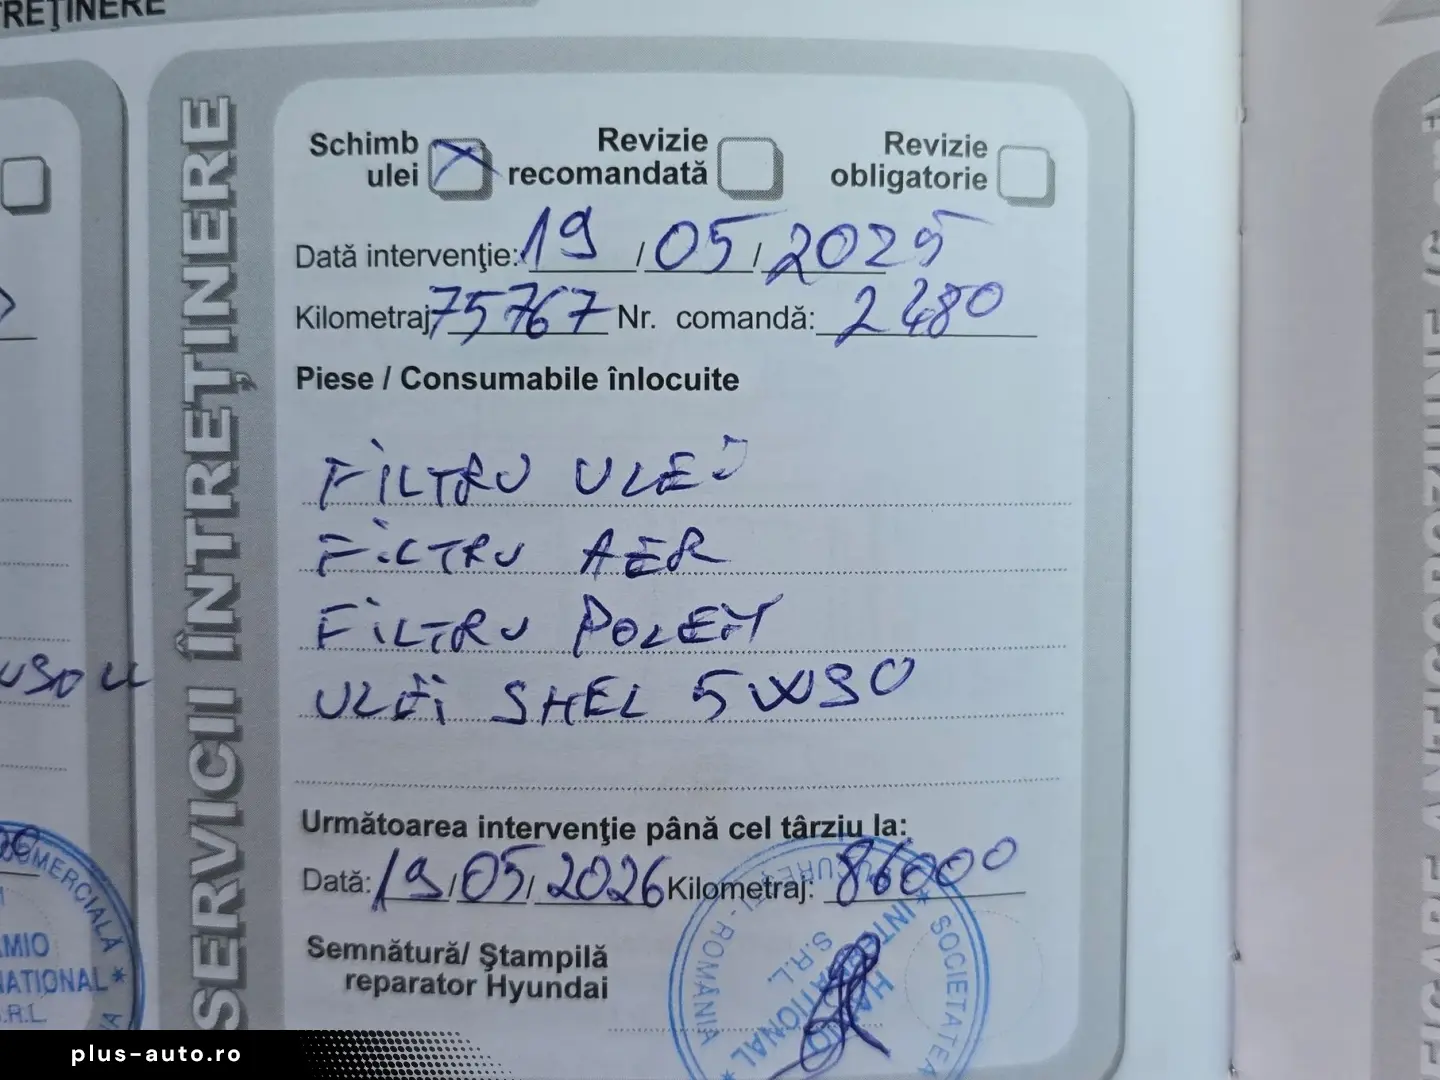 REŢINERE
SERVICII ÎNTREŢINERE
Schimb ulei
Revizie recomandată
Revizie obligatorie
Dată intervenţie: 19 / 05 / 2025
Kilometraj 75767 Nr. comandă: 2480
Piese / Consumabile înlocuite
FILTRU ULEI
FILTRU AER
FILTRU POLEN
ULEI SHEL 5W30
Următoarea intervenţie până cel târziu la:
Dată: 19 / 05 / 2026 Kilometraj: 86000
Semnătură/ Ştampilă
reparator Hyundai
SOCIETATEA
ROMÂNIA
INTERNATIONAL
S.R.L.
COMERCIALĂ
AMIO
NATIONAL
S.R.L.
plus-auto.ro